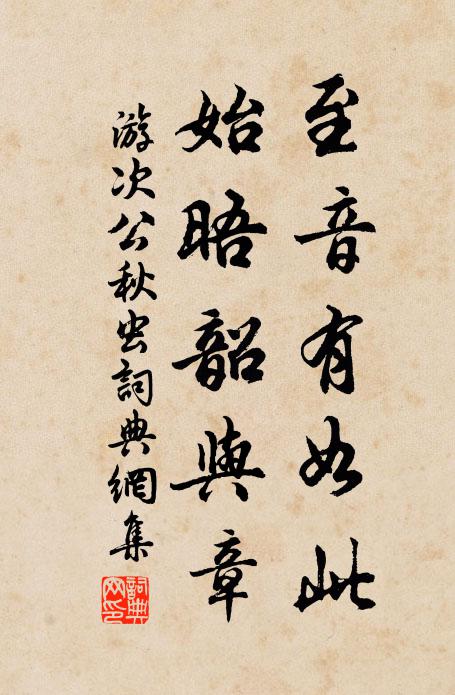 至音有如此
始晤韶與章
游次公秋虫詞典網集
詞典网印